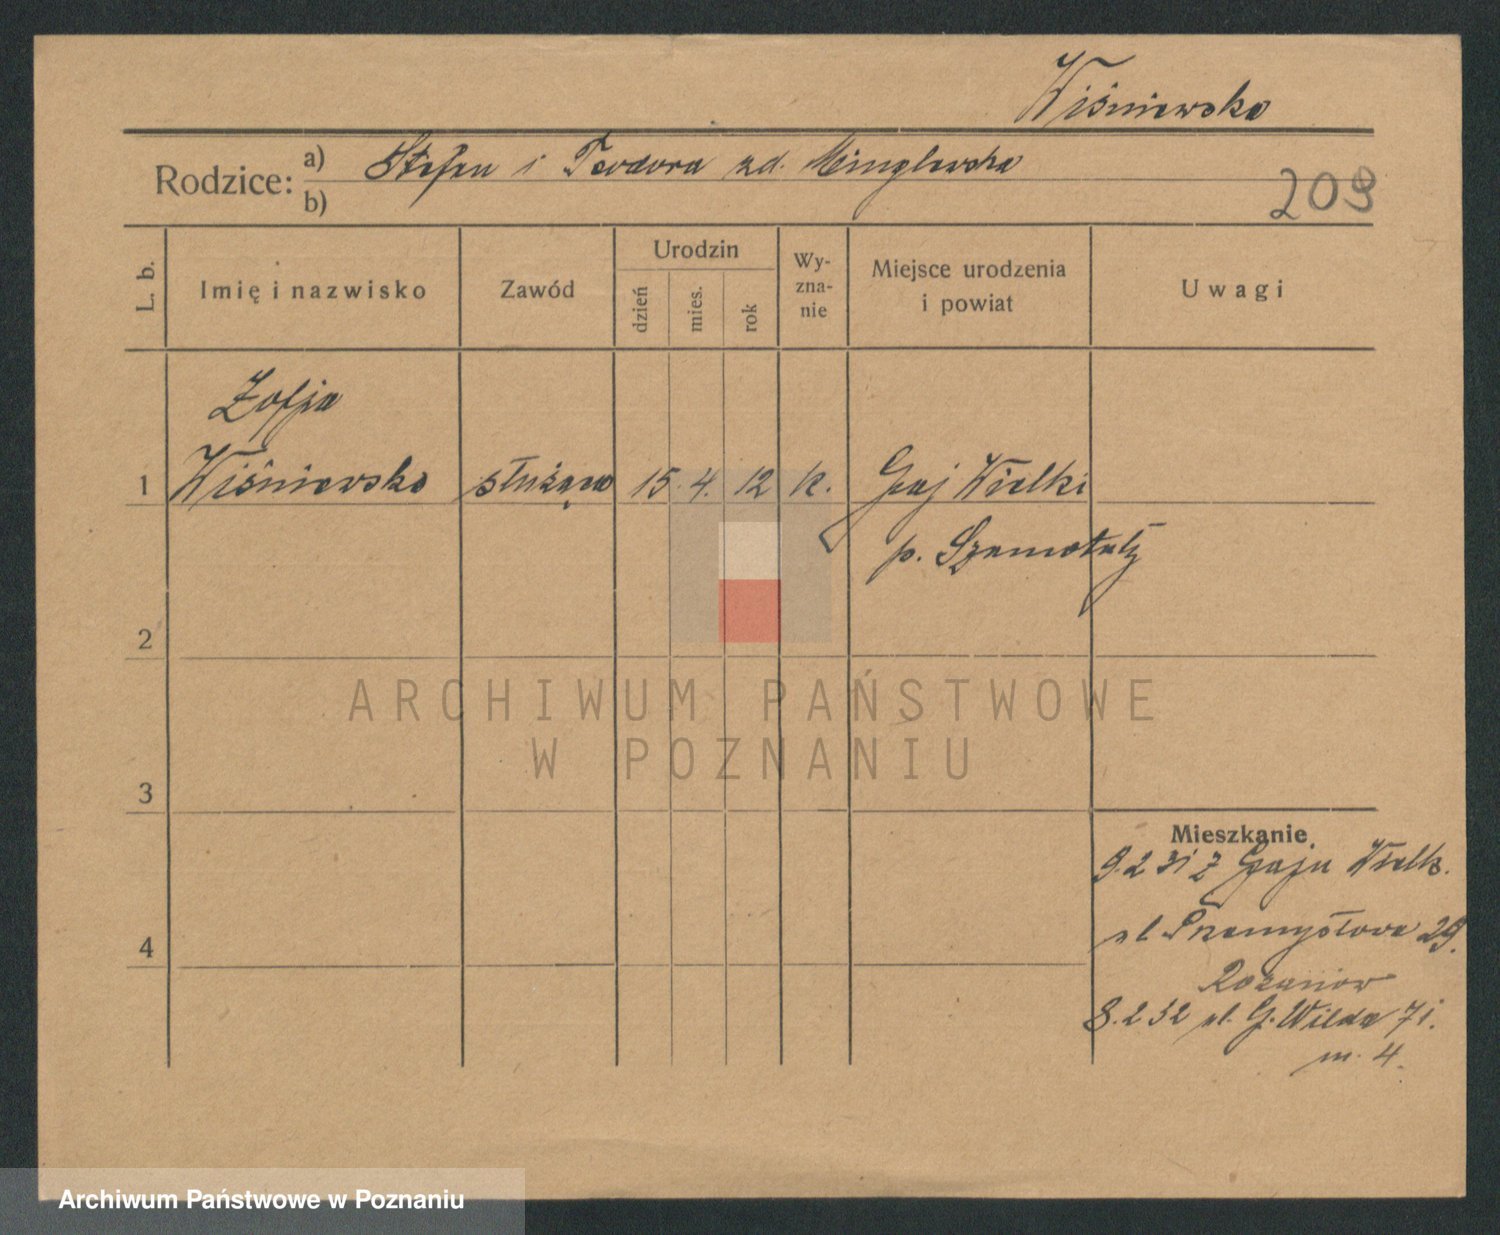 Wiśniewska
Rodzice: a) Stefan i Teodora zd. Minglewska
b)
209
L. b.
Imię i nazwisko
Zawód
Urodzin
dzień
mies.
rok
Wy-
zna-
nie
Miejsce urodzenia
i powiat
Uwagi
Zofja
1 Wiśniewska służąca 15. 4. 12 k. Gaj Wielki
p. Szamotuły
2
3
4
Mieszkanie
9.2 31 z Gaju Wielk.
ul. Przemysłowa 29.
8.2 32 ul. G. Wilda 71.
m. 4.
ARCHIWUM PAŃSTWOWE
W POZNANIU
Archiwum Państwowe w Poznaniu